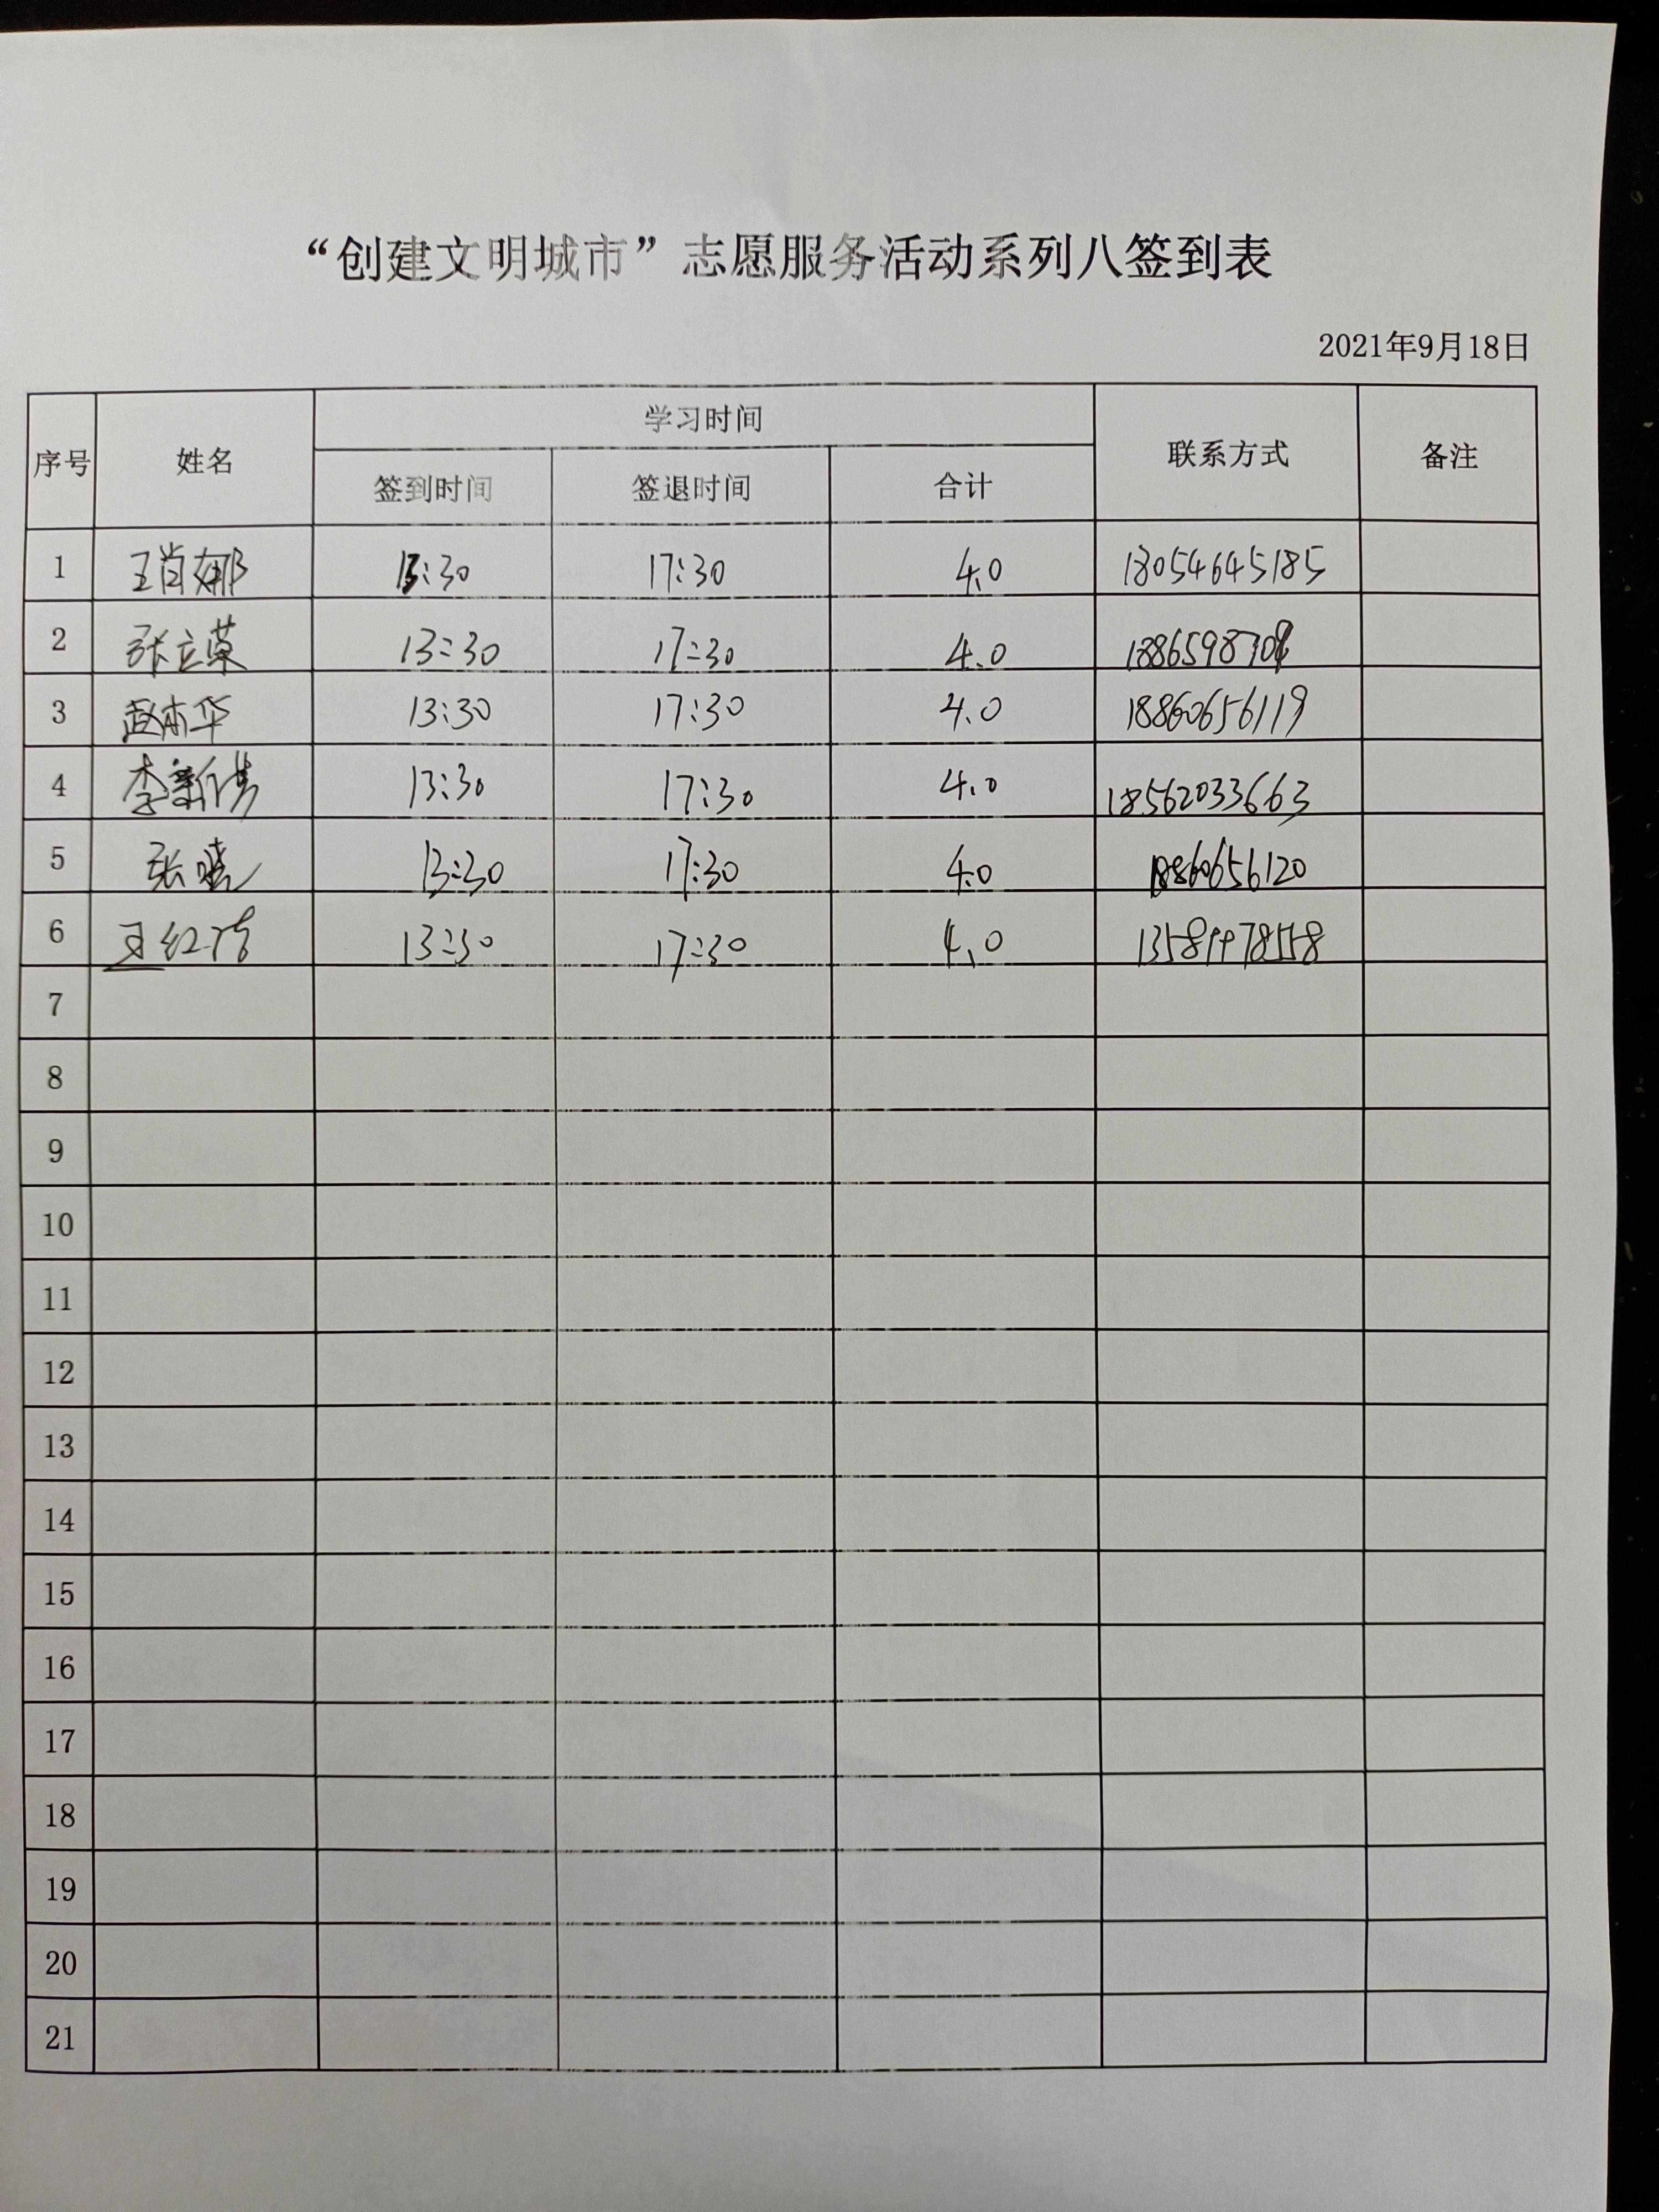 “创建文明城市”志愿服务活动系列八签到表
2021年9月18日
序号 姓名 学习时间 联系方式 备注
签到时间 签退时间 合计
1 王肖娜 13:30 17:30 4.0 18054645185
2 张立英 13:30 17:30 4.0
3 赵本华 13:30 17:30 4.0 18860656119
4 李新 13:30 17:30 4.0 18562033663
5 张晓 13:30 17:30 4.0 18860656120
6 王红 13:30 17:30 4.0
7
8
9
10
11
12
13
14
15
16
17
18
19
20
21